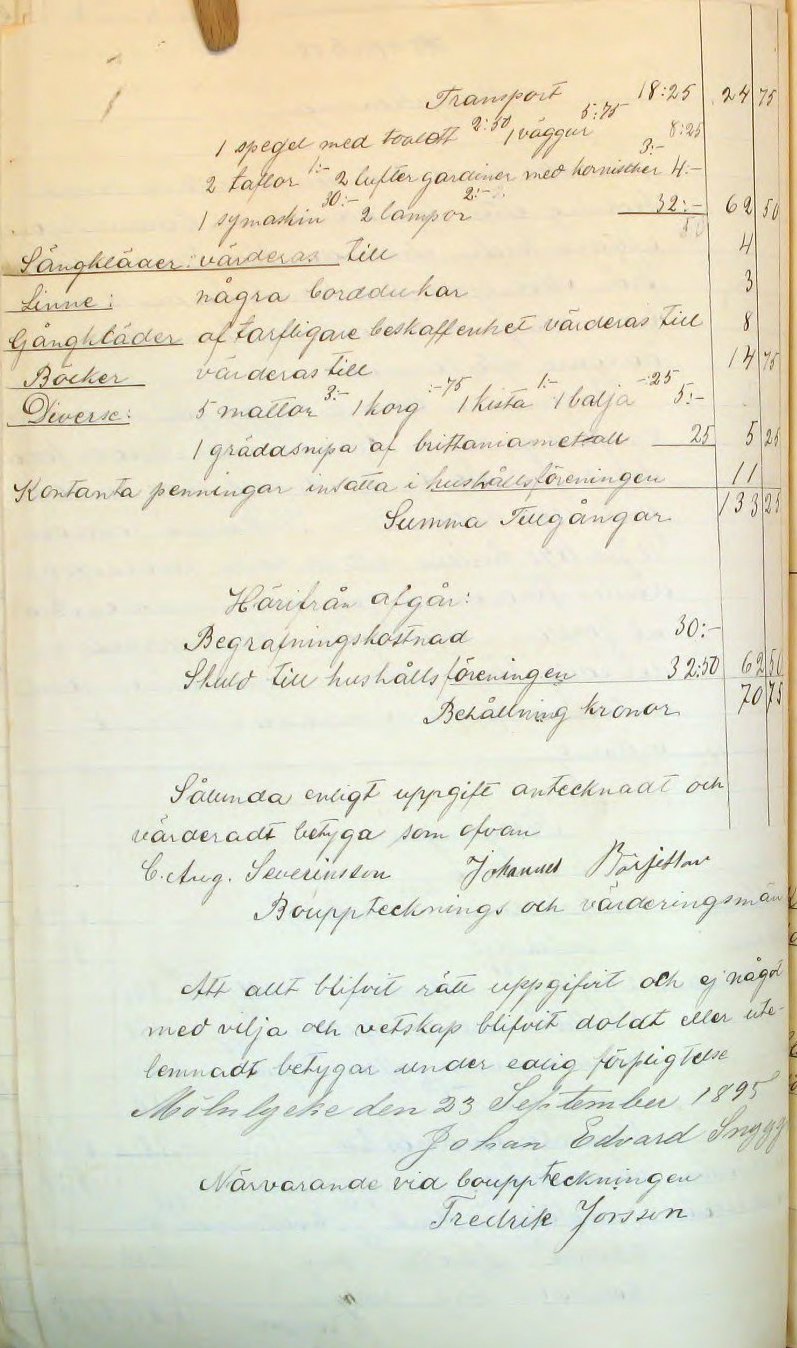 Transport 18:25 24 75
1 spegel med toalett 2:50 1 väggur 5:75 8:25
2 taflor 1:- 2 lufter gardiner med kornischer 3:- 4:-
1 symaskin 30:- 2 lampor 2:- 32:- 62 50
Sängkläder: värderas till 50 4
Linne: några borddukar 3
Gångkläder af tarfligare beskaffenhet värderas till 8
Böcker värderas till 14 75
Diverse: 5 mattor 3:- 1 korg :-75 1 kista 1:- 1 balja -:25 5:-
1 gräddsnipa af brittaniametall 25 5 25
Kontanta penningar insatta i hushållsföreningen 11
Summa Tillgångar 133 25
Härifrån afgår:
Begrafningskostnad 30:-
Skuld till hushållsföreningen 32:50 62 50
Behållning kronor 70 75
Sålunda enligt uppgift antecknadt och
värderadt betyga som ofvan
C. Aug. Severinsson Johannes Börjesson
Bouppteck­nings och värderingsmän
Att allt blifvit rätt uppgifvit och ej något
med vilja och vetskap blifvit doldt eller ute-
lemnadt betygar under edlig förpligtelse
Mölnlycke den 23 September 1895
Johan Edvard Snygg
Närvarande vid bouppteckningen
Fredrik Jonsson